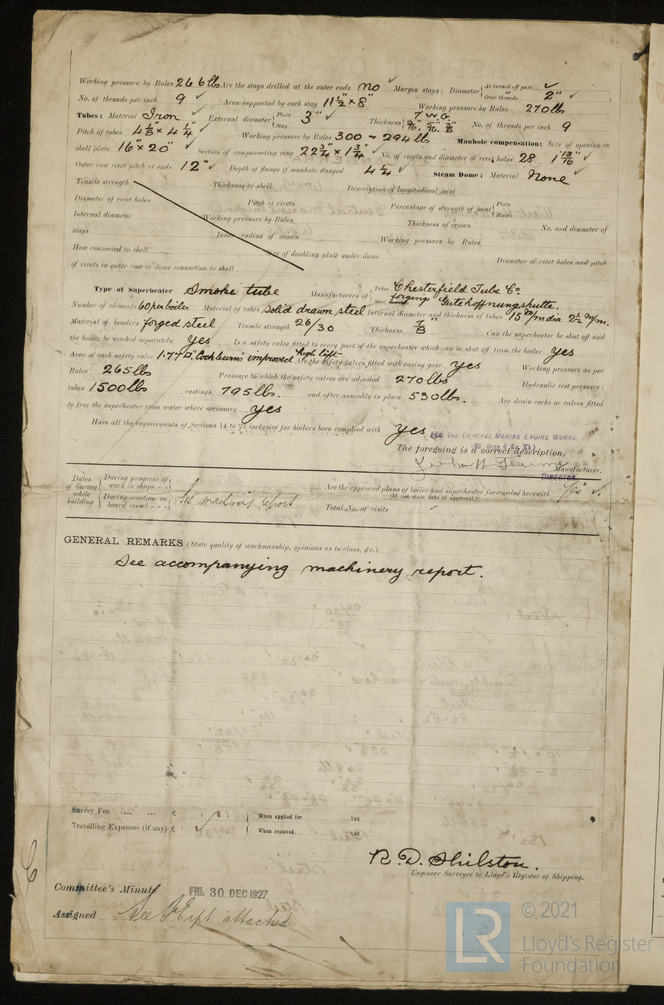 Working pressure by Rules 266 lbs Are the stays drilled at the outer ends no ✓ Margin stays: Diameter { At turned off part, ✓ or Over threads 2" ✓
No. of threads per inch 9 ✓ Area supported by each stay 11½" × 8" Working pressure by Rules 270 lbs
Tubes: Material Iron ✓ External diameter { Plain Stay 3" ✓ Thickness { 7 W.G. 5/16" No. of threads per inch 9
Pitch of tubes Working pressure by Rules 300 ~ 294 lbs Manhole compensation: Size of opening in
shell plate 16" × 20" ✓ Section of compensating ring No. of rivets and diameter of rivet holes 28
Outer row rivet pitch at ends 12" ✓ Depth of flange if manhole flanged 4¼ ✓ Steam Dome: Material None
Tensile strength Thickness of shell Description of longitudinal joint
Diameter of rivet holes Pitch of rivets Percentage of strength of joint { Plate Rivets
Internal diameter Working pressure by Rules Thickness of crown No. and diameter of
stays Inner radius of crown Working pressure by Rules
How connected to shell Size of doubling plate under dome Diameter of rivet holes and pitch
of rivets in outer row in dome connection to shell
Type of Superheater Smoke tube Manufacturers of { Tubes Chesterfield Tube Co. forgings Gutehoffnungshutte.
Number of elements 60 per boiler Material of tubes solid drawn steel Internal diameter and thickness of tubes 15 m/m dia 2½ m/m.
Material of headers forged steel Tensile strength 26/30 Thickness 7/8" Can the superheater be shut off and
the boiler be worked separately yes Is a safety valve fitted to every part of the superheater which can be shut off from the boiler yes
Area of each safety valve 1.77 □" Cockburns improved high lift Are the safety valves fitted with easing gear yes Working pressure as per
Rules 265 lbs Pressure to which the safety valves are adjusted 270 lbs Hydraulic test pressure:
tubes 1500 lbs castings 795 lbs. and after assembly in place 530 lbs. Are drain cocks or valves fitted
to free the superheater from water where necessary yes
Have all the requirements of Sections 14 to 23 inclusive for boilers been complied with yes
FOR THE CENTRAL MARINE ENGINE WORKS,
The foregoing is a correct description,
Manufacturer.
DIRECTOR
Dates of Survey while building { During progress of work in shops - - During erection on board vessel - - - See machinery report
Are the approved plans of boiler and superheater forwarded herewith Yes ✓
(If not state date of approval.)
Total No. of visits
GENERAL REMARKS (State quality of workmanship, opinions as to class, &c.)
See accompanying machinery report.
Survey Fee ... ... £ : : When applied for, 192
Travelling Expenses (if any) £ : : When received, 192
R. D. Shilston.
Engineer Surveyor to Lloyd's Register of Shipping.
Committee's Minute FRI. 30 DEC 1927
Assigned See F.E. rpt. attached
LR
© 2021
Lloyd's Register
Foundation